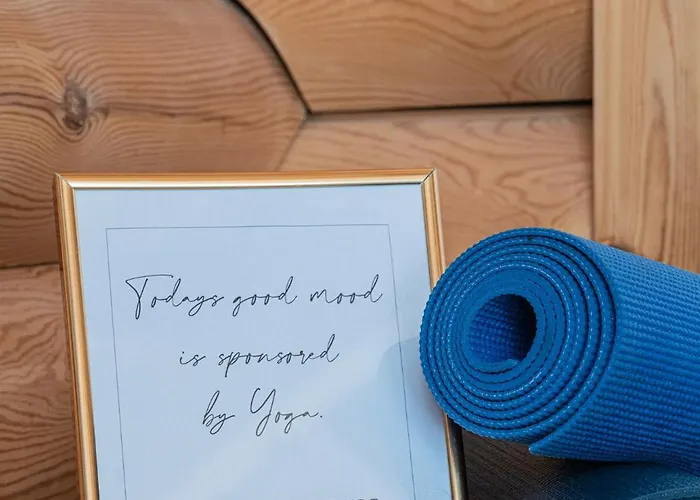 Todays good mood
is sponsored
by Yoga.